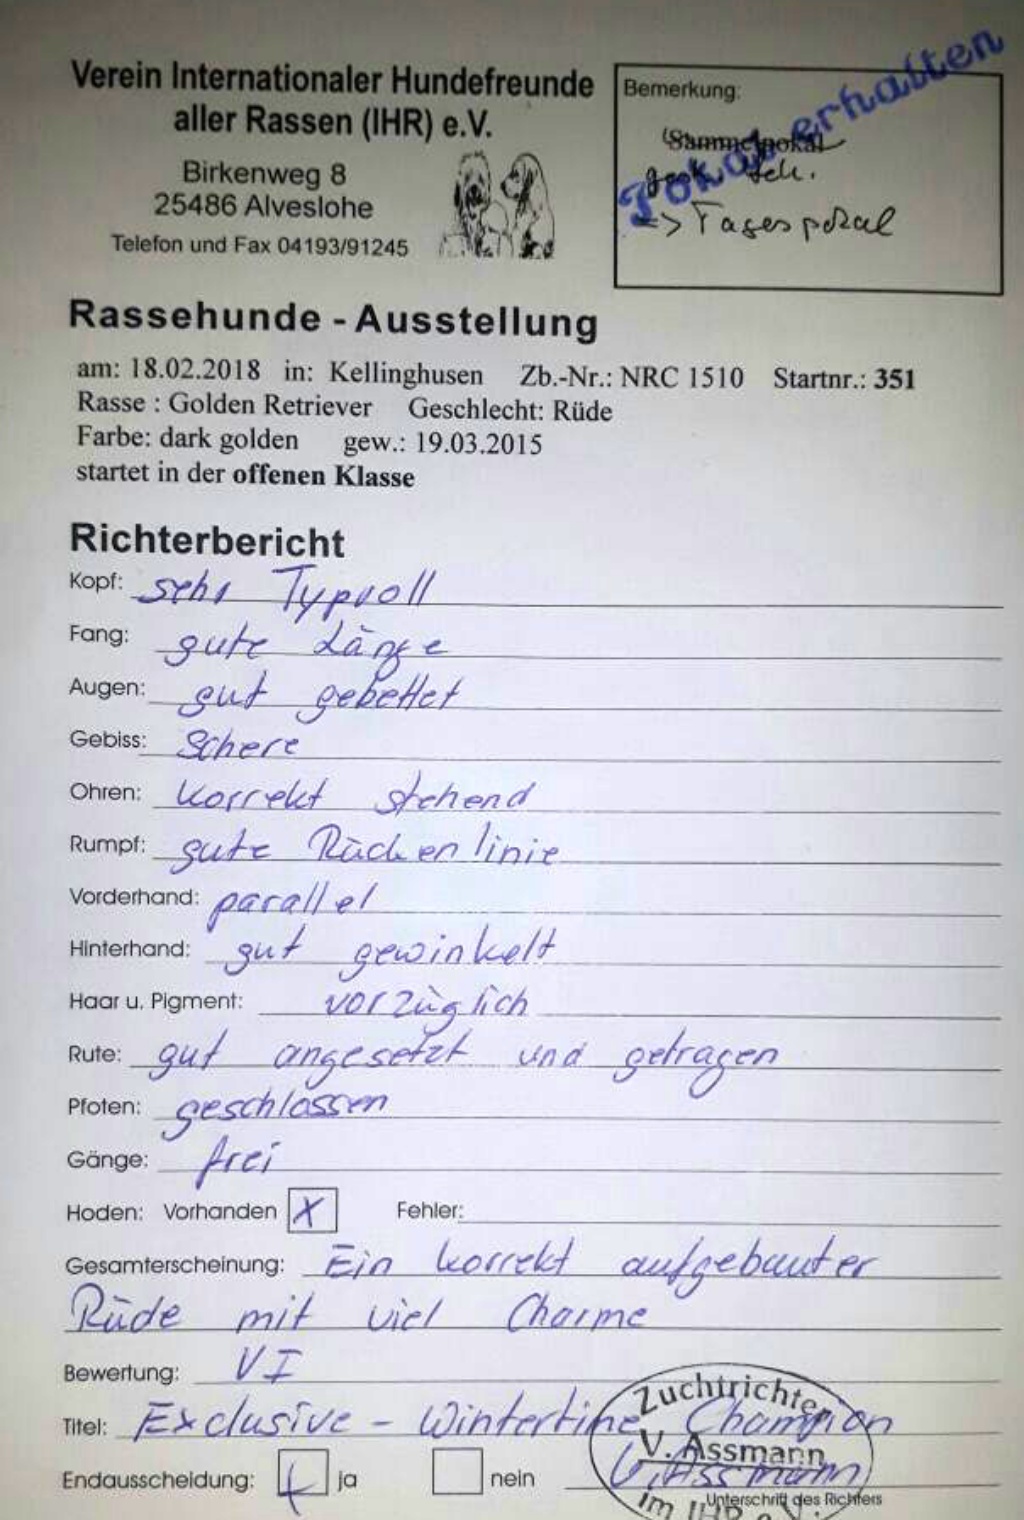 Verein Internationaler Hundefreunde
aller Rassen (IHR) e.V.
Birkenweg 8
25486 Alveslohe
Telefon und Fax 04193/91245
Bemerkung:
Sammelpokal
Pokal erhalten
=> Tagespokal
Rassehunde - Ausstellung
am: 18.02.2018 in: Kellinghusen Zb.-Nr.: NRC 1510 Startnr.: 351
Rasse : Golden Retriever Geschlecht: Rüde
Farbe: dark golden gew.: 19.03.2015
startet in der offenen Klasse
Richterbericht
Kopf: sehr Typvoll
Fang: gute Länge
Augen: gut gebettet
Gebiss: Schere
Ohren: korrekt stehend
Rumpf: gute Rückenlinie
Vorderhand: parallel
Hinterhand: gut gewinkelt
Haar u. Pigment: vorzüglich
Rute: gut angesetzt und getragen
Pfoten: geschlossen
Gänge: frei
Hoden: Vorhanden X Fehler:
Gesamterscheinung: Ein korrekt aufgebauter
Rüde mit viel Charme
Bewertung: V I
Titel: Exclusive - Wintertime Champion
Zuchtrichter
V. Assmann
im IHR e.V.
Endausscheidung: ja nein V. Assmann
Unterschrift des Richters